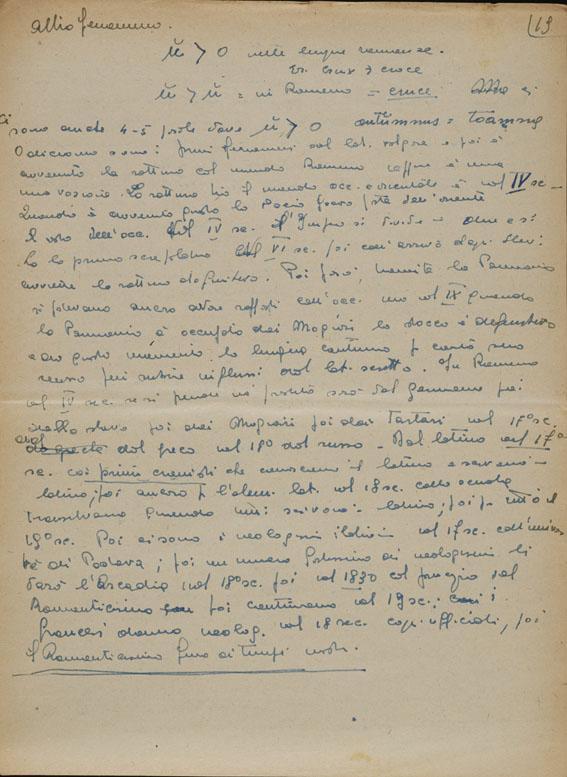 altro fenomeno. 13
ŭ > o nelle lingue romanze.
Es. crux > croce
ŭ > ŭ = in Rumeno = cruce
sono anche 4-5 parole dove ŭ > o autumnus = toamna
fenomeni del lat. volgare e poi è
avvenuta la rottura col mondo
una voragine. La rottura tra il mondo occ. e orientale è nel IV sec.
Quando è avvenuta questa la Dacia faceva parte dell'oriente
dell'occ. Nel IV sec. l'Impero si divide
la prima nel VI sec. poi con arrivo degli Slavi
avviene la rottura definitiva. Poi però, tramite la Pannonia
si potevano ancora avere rapporti coll'occ. ma nel IX quando
la Pannonia è occupata dai Magiari lo stacco è definitivo
e da questo momento la lingua continua per conto suo
senza più subire influssi dal lat. scritto. In Rumeno
dal IV sec. si prende in prestito sarà dal poi
dallo slavo poi dai Magiari poi dai Tartari nel 17° sec.
dal greco nel 18° dal russo - Dal latino nel 17°
sec. coi primi cronisti che conoscevano il latino e
latino; poi ancora nel 18 sec. colla scuola
transilvana quando tutti scrivono in latino; poi tutto il
19° sec. Poi ci sono i neologismi italiani nel 17 sec. coll'univer
tà di Padova; poi un numero fortissimo di neologismi li
darà l'Arcadia nel 18° sec. poi nel 1830 col principio del
Romanticismo poi continuano nel 19 sec.; i
francesi danno neolog. nel 18 sec. cogli ufficiali, poi
il Romanticismo fino ai tempi nostri.